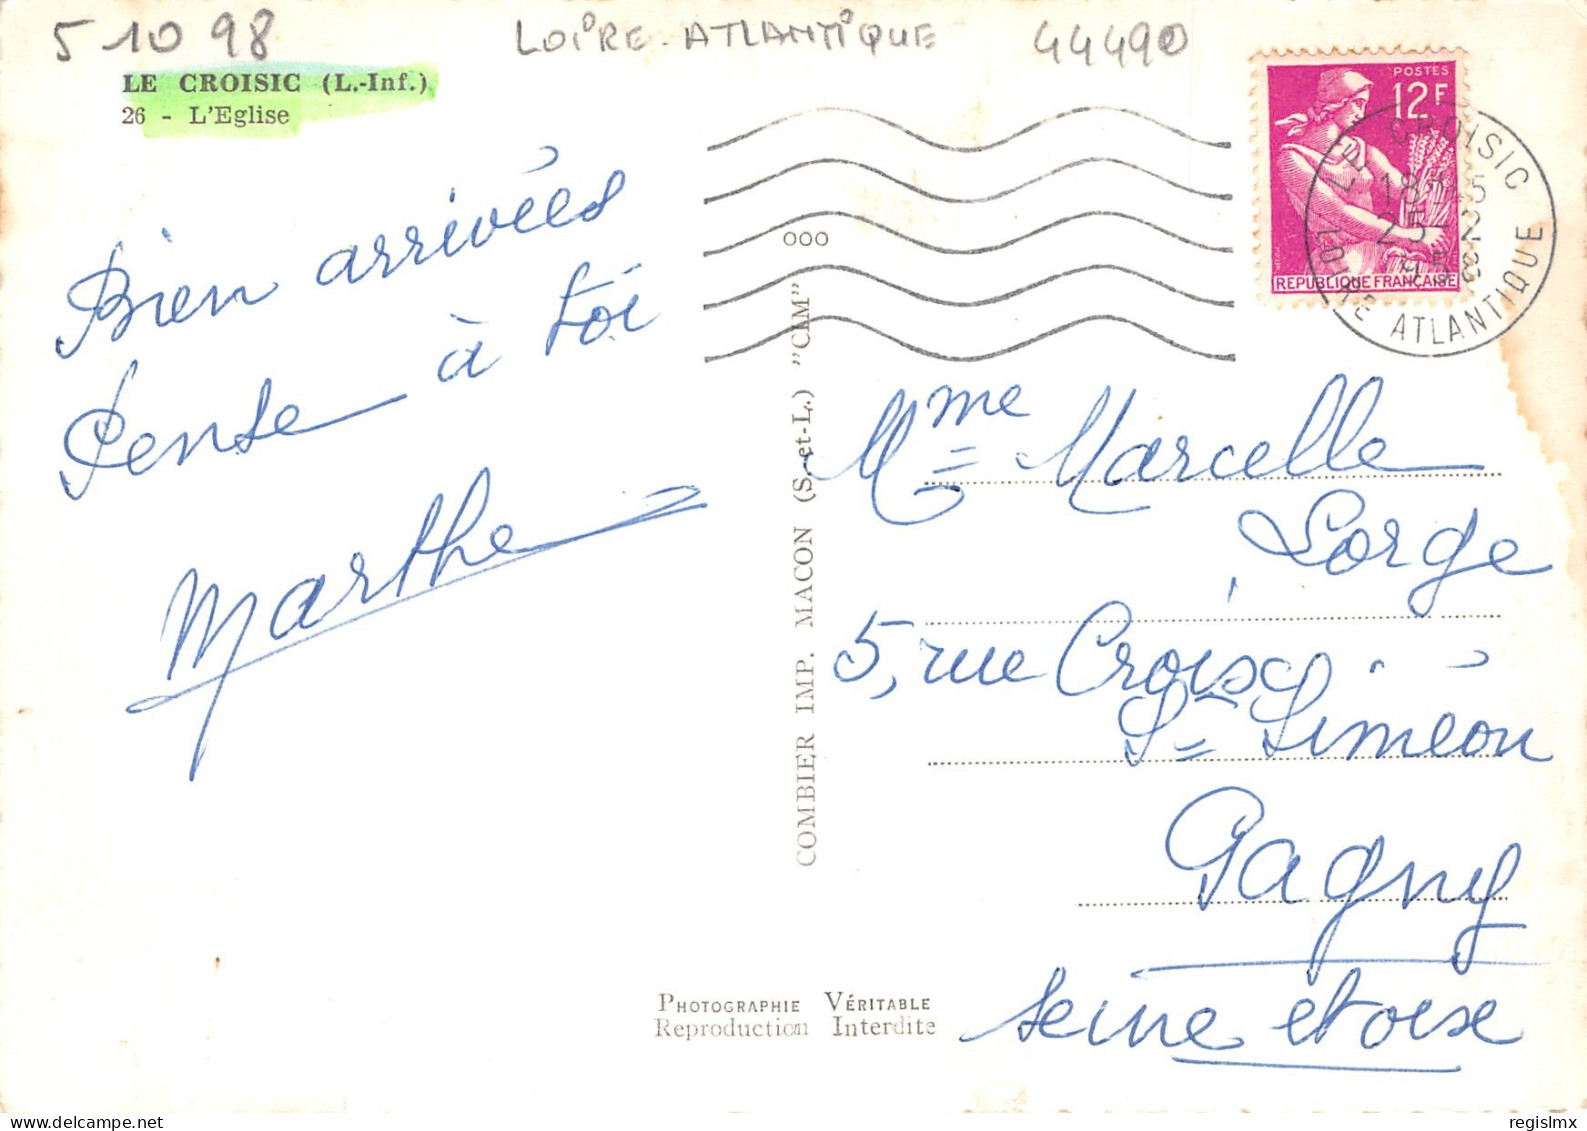 5 10 98
LOIRE-ATLANTIQUE 44490
LE CROISIC (L.-Inf.)
26 - L'Eglise
POSTES
12F
REPUBLIQUE FRANÇAISE
LE CROISIC
25-2
1958
LOIRE ATLANTIQUE
000
Bien arrivées
Pense à toi
Marthe
COMBIER IMP. MACON (S.-et-L.) "CIM"
Mme Marcelle
Lorge
5, rue Croix
St Siméon
Gagny
Seine et oise
PHOTOGRAPHIE VÉRITABLE
Reproduction Interdite
regislmx